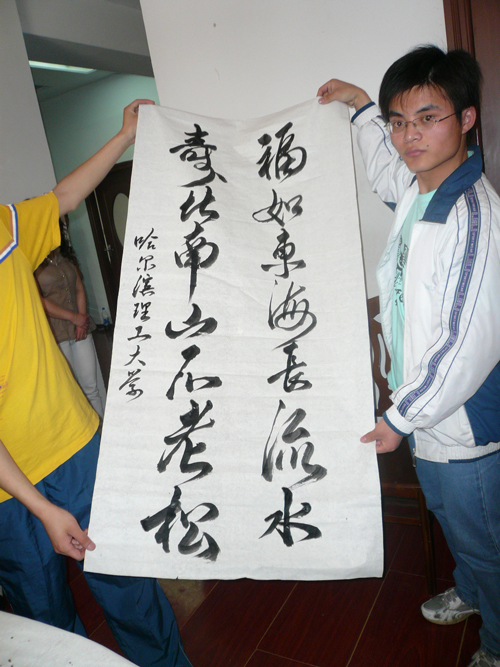 福如東海長流水
壽比南山不老松
哈尔滨理工大学